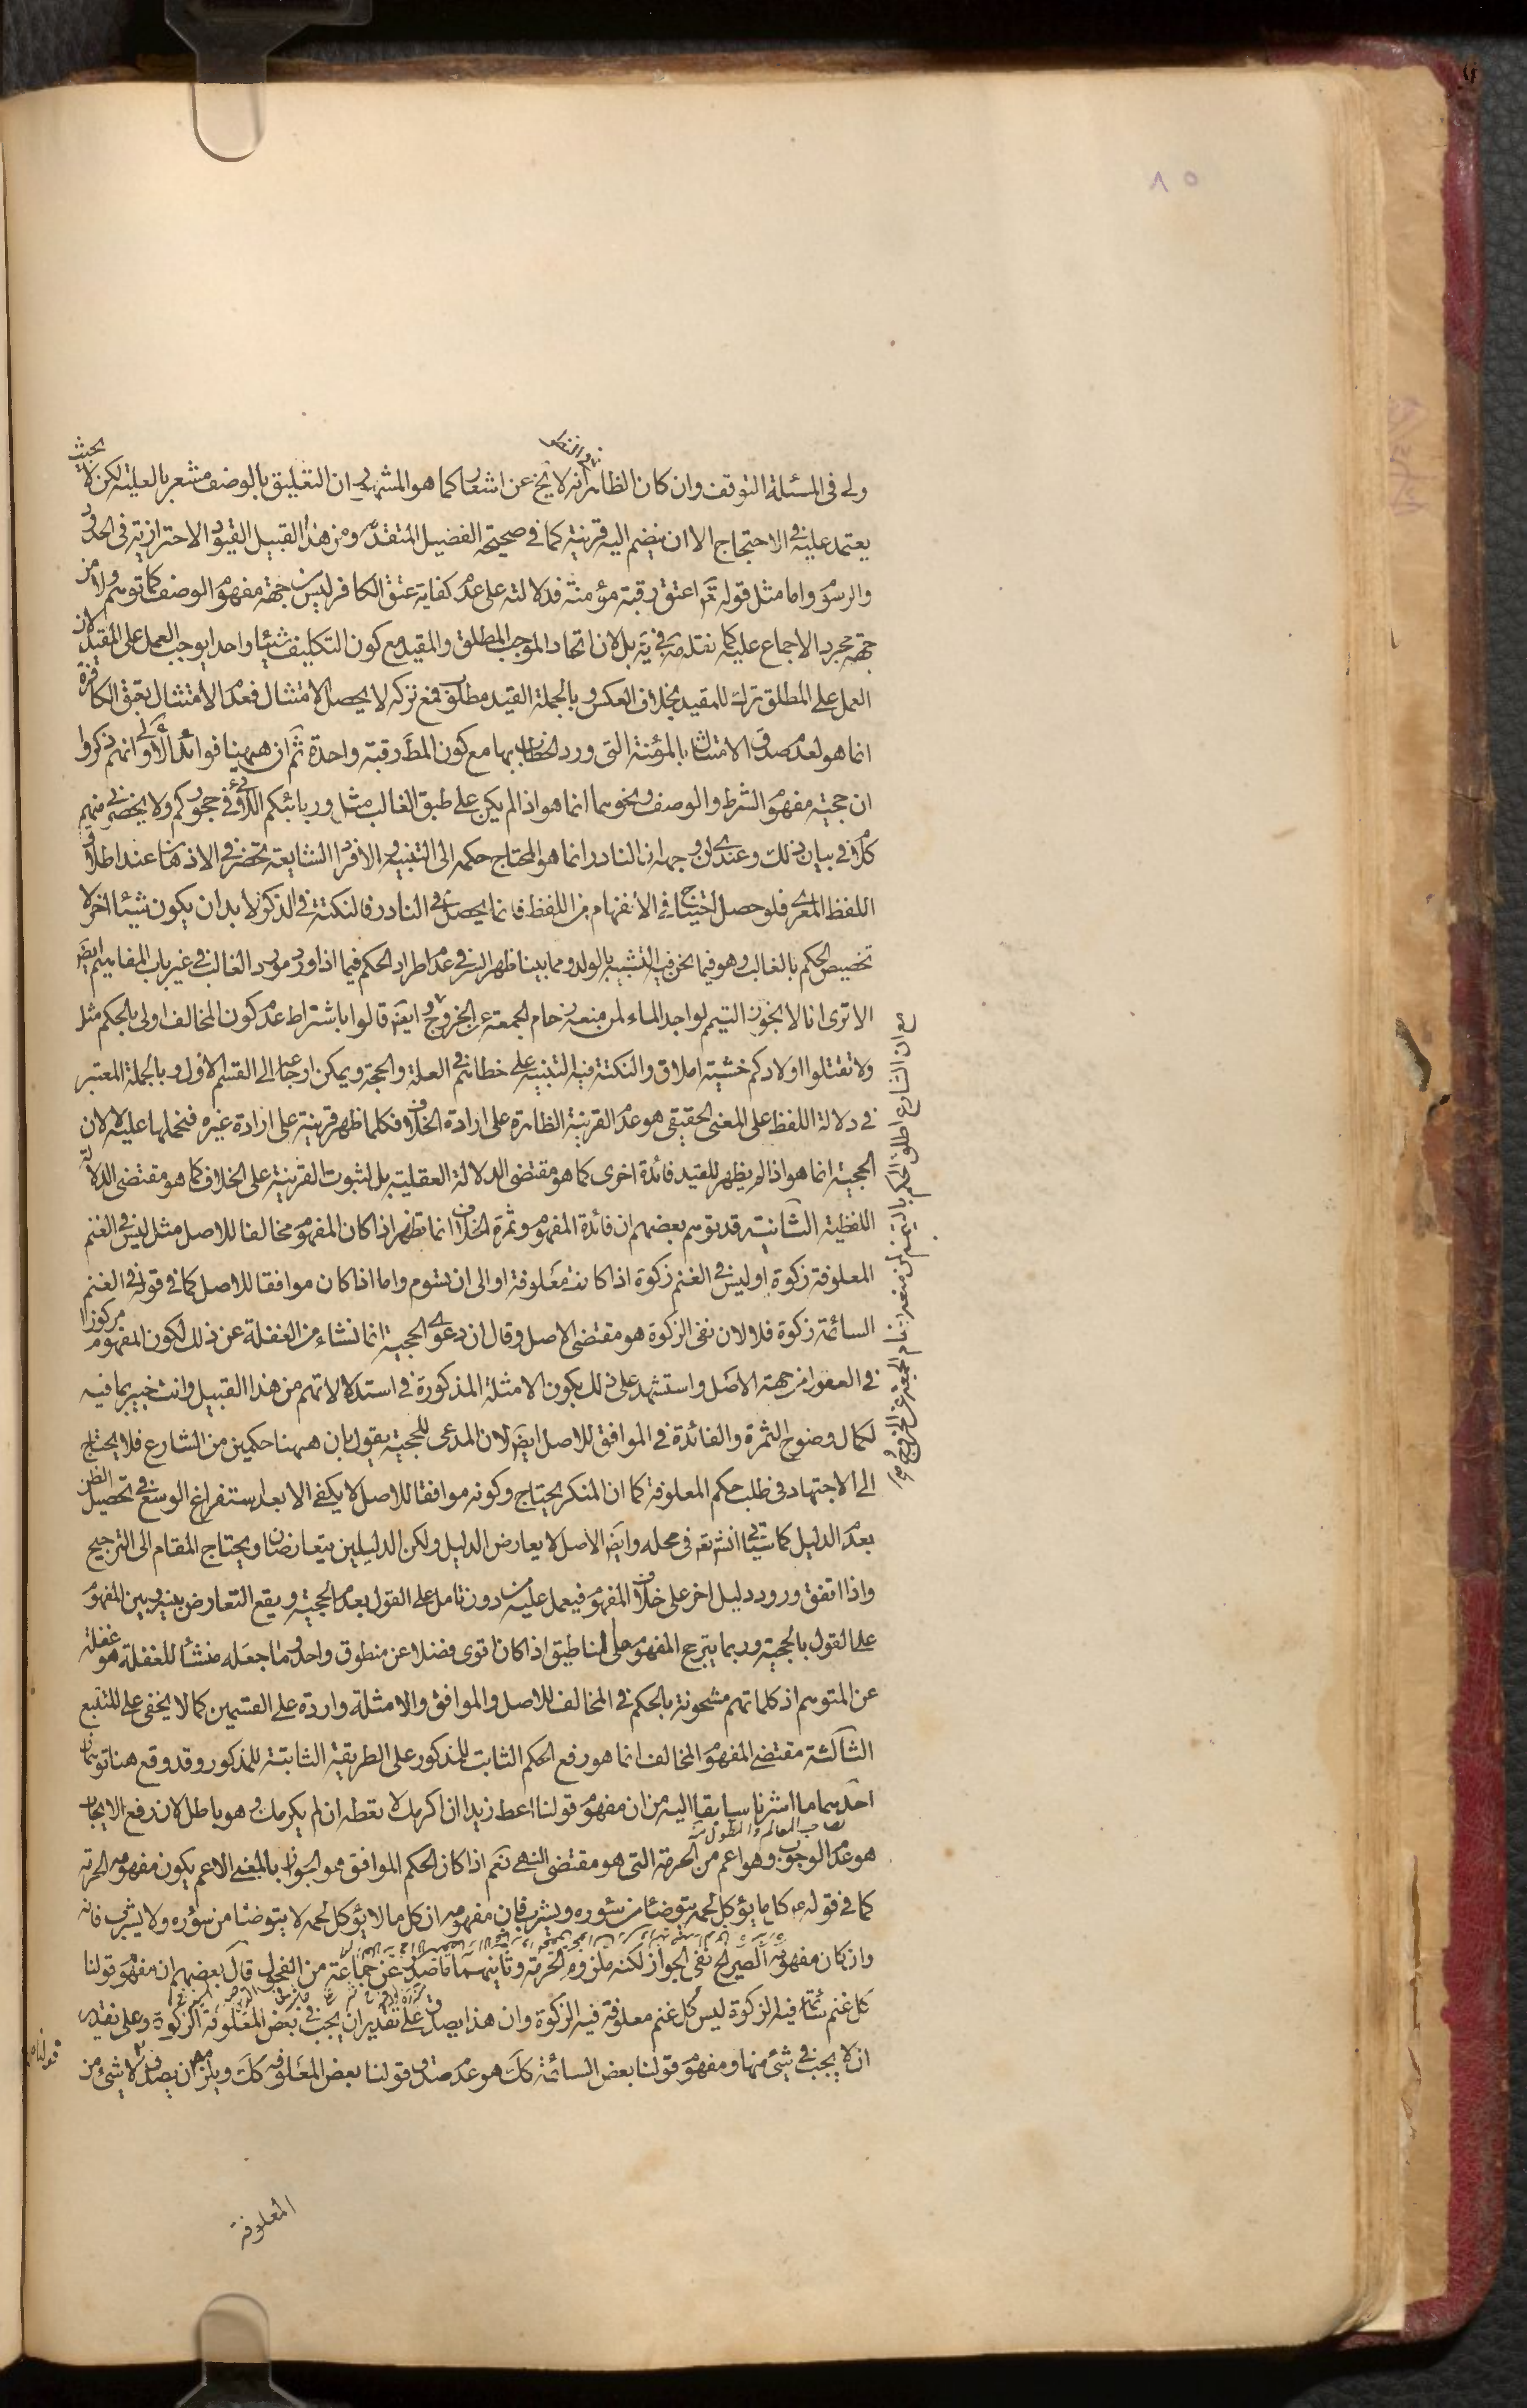 ٨٥
ولى فى المسئلة التوقف وان كان الظاهر انه لا يخ عن اشعار كما هو المشهور ان التعليق بالوصف مشعر بالعلية لكن لا بحيث
يعتمد عليه فى الاحتجاج الا ان ينضم اليه قرينة كما فى صحيحة الفضيل المتقدمة ومن هذا القبيل القيود الاحترازية فى الحدود
والرسوم واما مثل قوله تع اعتق رقبة مؤمنة فدلالته على عدم كفاية عتق الكافرة ليس من جهة مفهوم الوصف كما توهم ولا من
جهة مجرد الاجماع عليه كما نقله فى يه بل لان اتحاد الموجب المطلق والمقيد مع كون التكليف شيئا واحدا يوجب العمل على المقيد لان
العمل على المطلق ترك للمقيد بخلاف العكس وبالجملة القيد مطلوب فمع تركه لا يحصل الامتثال فعدم الامتثال بعتق الكافرة
انما هو لعدم صدق الامتثال بالمؤمنة التى ورد الخطاب بها مع كون المط رقبة واحدة ثم ان ههنا فوائد الأولى انهم ذكروا
ان حجية مفهوم الشرط والوصف ونحوهما انما هو اذا لم يكن على طبق الغالب مثل وربائبكم اللاتى فى حجوركم ولا يحضرنى منهم
كلام فى بيان ذلك وعندى ان وجهه ان النادر انما هو المحتاج حكمه الى التنبيه والافراد الشايعة تحضر فى الاذهان عند اطلاق
اللفظ المعرى فلو حصل احتياج فى الانفهام من اللفظ فانما يحصل فى النادر فالنكتة فى الذكر لا بد ان يكون شيئا اخر لا
تخصيص الحكم بالغالب وهو فيما نحن فيه التشبيه بالولد ومما بينا ظهر السر فى عدم اطراد الحكم فيما اذا ورد مورد الغالب فى غير باب المفاهيم ايض
الا ترى انا لا نجوز التيمم لواجد الماء لمن منعه زحام الجمعة عن الخروج وايض قالوا باشتراط عدم كون المخالف اولى بالحكم مثل
ولا تقتلوا اولادكم خشية املاق والنكتة فيه التنبيه على خطائهم فى العلة والحجة ويمكن ارجاعه الى القسم الاول وبالجملة المعتبر
فى دلالة اللفظ على المعنى الحقيقى هو عدم القرينة الظاهرة على ارادة الخلاف فكلما ظهر قرينة على ارادة غيره فنحملها عليه لا لان
الحجية انما هو اذا لم يظهر للقيد فائدة اخرى كما هو مقتضى الدلالة العقلية بل لثبوت القرينة على الخلاف كما هو مقتضى الدلالة
اللفظية الثانية قد توهم بعضهم ان فائدة المفهوم وثمرة الخلاف انما تظهر اذا كان المفهوم مخالفا للاصل مثل ليس فى الغنم
المعلوفة زكوة او ليس فى الغنم زكوة اذا كانت معلوفة او الى ان يسوم واما اذا كان موافقا للاصل كما فى قوله فى الغنم
السائمة زكوة فلا لان نفى الزكوة هو مقتضى الاصل وقال ان دعوى الحجية انما نشاء من الغفلة عن ذلك لكون المفهوم مركوزا
فى العقول من جهة الاصل واستشهد على ذلك بكون الامثلة المذكورة فى استدلالاتهم من هذا القبيل وانت خبير بما فيه
لكمال وضوح الثمرة والفائدة فى الموافق للاصل ايض لان المدعى للحجية يقول بان ههنا حكمين من الشارع فلا يحتاج
الى الاجتهاد فى طلب حكم المعلوفة كما ان المنكر يحتاج وكونه موافقا للاصل لا يكفى الا بعد استفراغ الوسع فى تحصيل الظن
بعدم الدليل كما سيأتى انش تع فى محله وايض الاصل لا يعارض الدليل ولكن الدليلين يتعارضان ويحتاج المقام الى الترجيح
واذا اتفق ورود دليل اخر على خلاف المفهوم فيعمل عليه من دون تامل على القول بعدم الحجية ويقع التعارض بينه وبين المفهوم
على القول بالحجية وربما يترجح المفهوم على المناطيق اذا كان اقوى فضلا عن منطوق واحد وما جعله منشأ للغفلة هو غفلة
عن المتوهم اذ كلماتهم مشحونة بالحكم فى المخالف للاصل والموافق والامثلة واردة على القسمين كما لا يخفى على المتتبع
الثالثة مقتضى المفهوم المخالف انما هو رفع الحكم الثابت للمذكور على الطريقة الثابتة للمذكور وقد وقع هنا توهمان
احدهما ما اشرنا سابقا اليه من ان مفهوم قولنا اعط زيدا ان اكرمك لا تعطه ان لم يكرمك وهو باطل لان رفع الايجاب
هو عدم الوجوب وهو اعم من الحرمة التى هو مقتضى النهى نعم اذا كان الحكم الموافق هو الجواز بالمعنى الاعم يكون مفهومه الحرمة
كما فى قوله ع كل ما يؤكل لحمه يتوضئا من سئوره ويشرب فان مفهومه ان كل ما لا يؤكل لحمه لا يتوضئا من سؤره ولا يشرب فانه
وان كان مفهومه الصريح نفى الجواز لكنه ملزوم للحرمة وثانيهما ما صدر عن جماعة من الفحول قال بعضهم ان مفهوم قولنا
كل غنم سائمة فيه الزكوة ليس كل غنم معلوفة فيه الزكوة وان هذا يصدق على تقدير ان يجب فى بعض المعلوفة الزكوة وعلى تقدير
ان لا يجب فى شىء منها ومفهوم قولنا بعض السائمة كك هو عدم صدق قولنا بعض المعلوفه كك ويلزمه ان يصدق لا شىء من
مع ان الشارع اطلق الحكم بالتيمم لمن منعه زحام الجمعة عن الخروج
المعلوفة